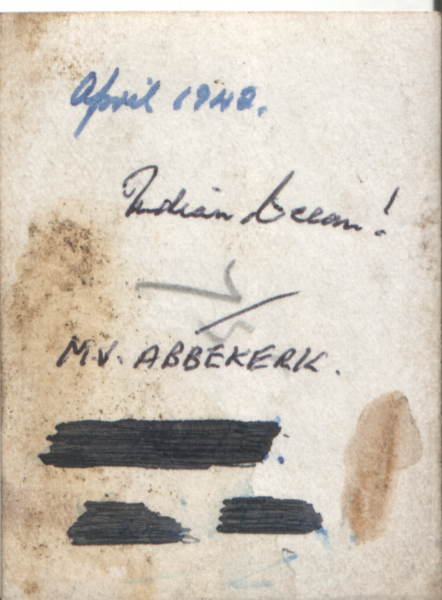 April 1942.
Indian Ocean!
M.V. ABBEKERK.